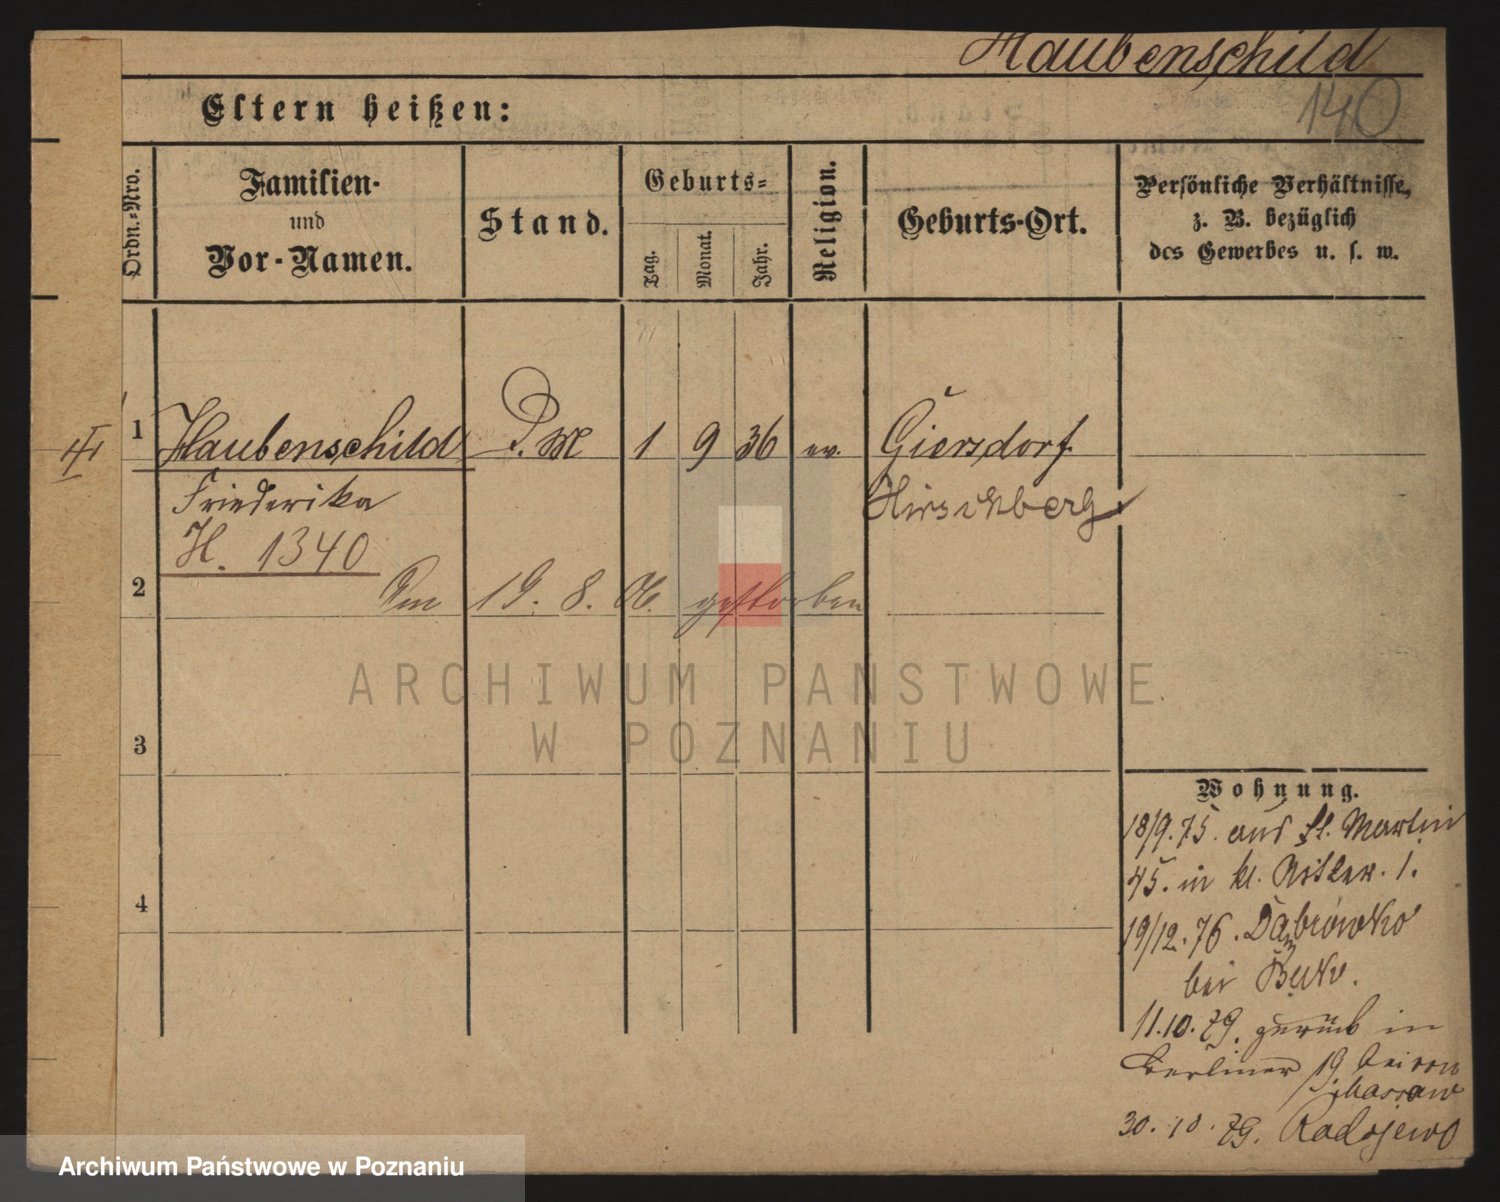 Haubenschild
140
Eltern heißen:
Ordn.-Nro.
Familien-
und
Vor-Namen.
Stand.
Geburts-
Tag.
Monat.
Jahr.
Religion.
Geburts-Ort.
Persönliche Verhältnisse,
z. B. bezüglich
des Gewerbes u. s. w.
1 Haubenschild D. M 1 9 36 ev. Giersdorf
Friederika Hirschberg
H. 1340
2 Am 19. 8. 06. gestorben
3
4
Wohnung.
18/9.75. aus St. Martin
45. in kl. Ritter. 1.
19/12.76. Dąbrówko
bei Buk.
11.10.79. zurück in
Berliner 19 bei von
Massow
30.10.79. Radojewo
ARCHIWUM PAŃSTWOWE
W POZNANIU
Archiwum Państwowe w Poznaniu